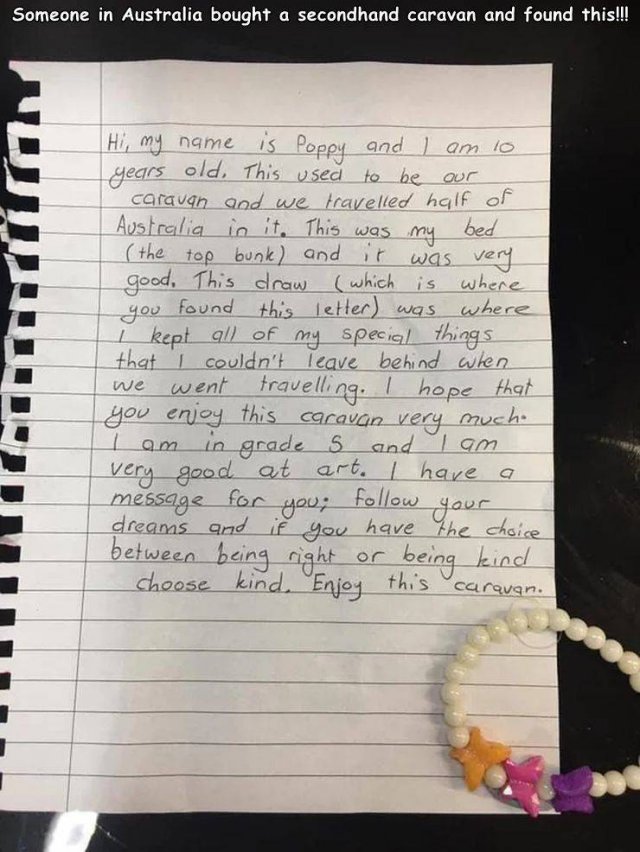 Someone in Australia bought a secondhand caravan and found this!!!
Hi, my name is Poppy and I am 10
years old. This used to be our
caravan and we travelled half of
Australia in it. This was my bed
(the top bunk) and it was very
good. This draw (which is where
you found this letter) was where
I kept all of my special things
that I couldn't leave behind when
we went travelling. I hope that
you enjoy this caravan very much.
I am in grade 5 and I am
very good at art. I have a
message for you; follow your
dreams and if you have the choice
between being right or being kind
choose kind. Enjoy this caravan.